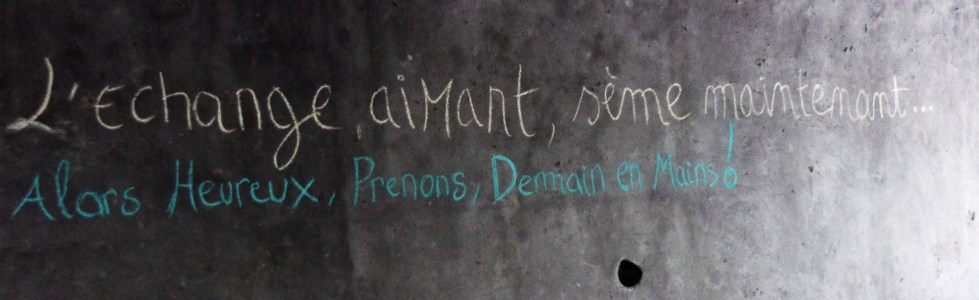 L'Echange aimant, sème maintenant...
Alors Heureux, Prenons, Demain en Mains!